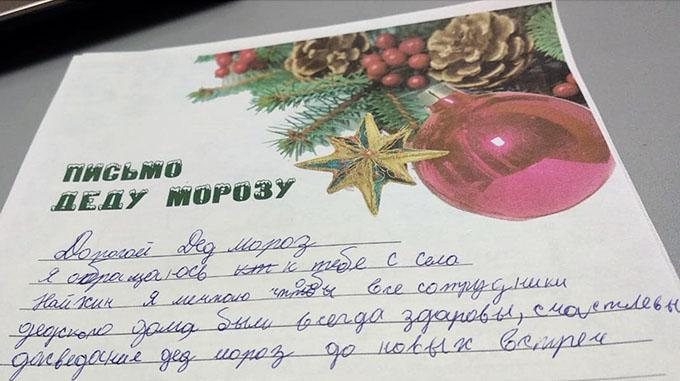 ПИСЬМО
ДЕДУ МОРОЗУ
Дорогой Дед мороз
я обращаюсь к тебе с села
Найхин я мечтаю чтобы все сотрудники
децкого дома были всегда здаровы, счастлевы
досведание дед мороз до новых встреч